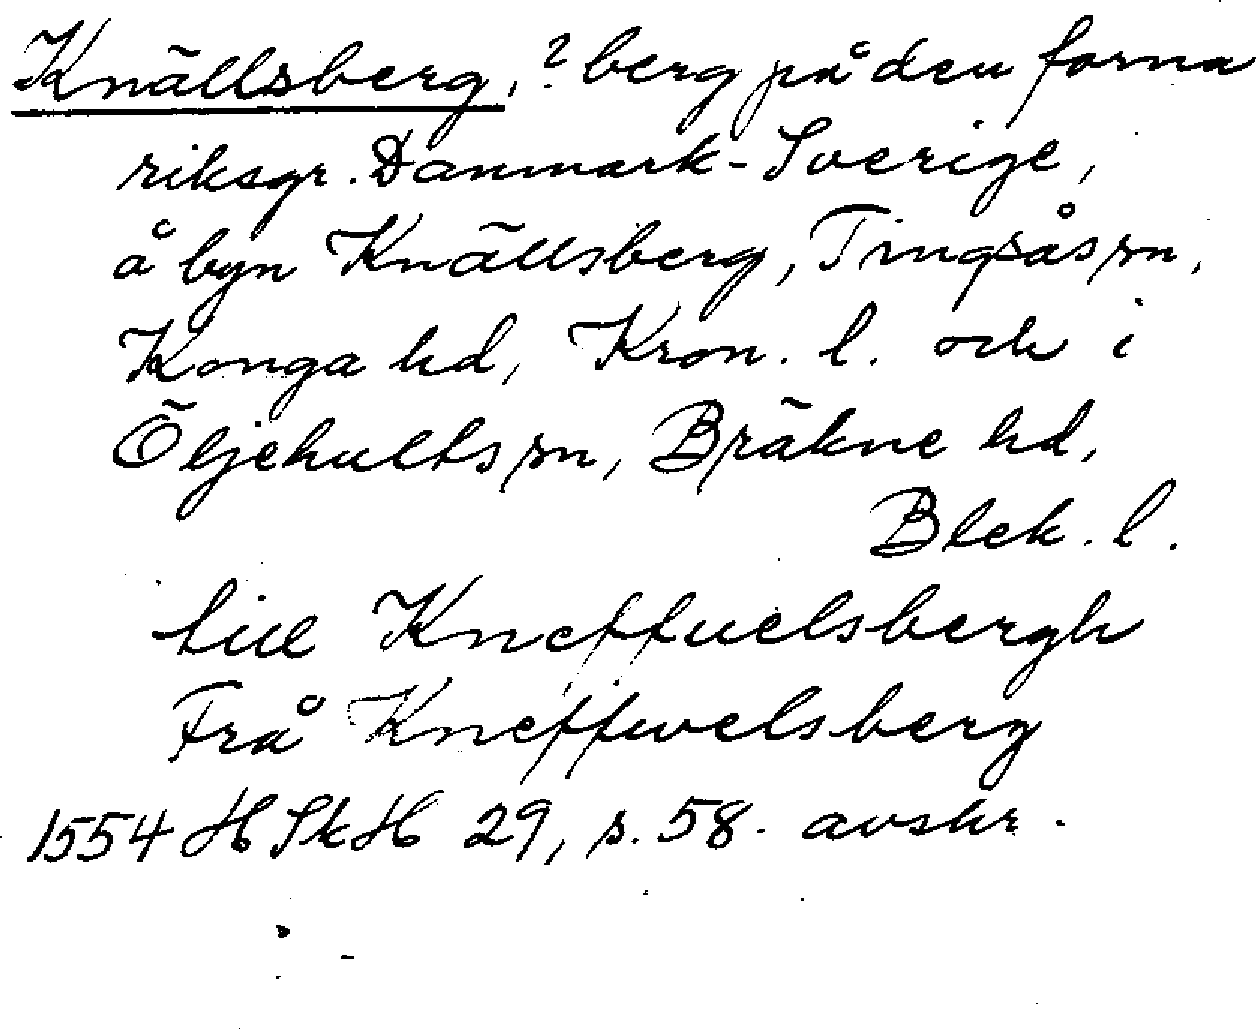 Knällsberg, ? berg på den forna
riksgr. Danmark-Sverige,
å byn Knällsberg, Tingsås sn,
Konga hd, Kron. l. och i
Öljehults sn, Bräkne hd,
Blek. l.
till Kneffuelsbergh
Frå Kneffwelsberg
1554 HSkH 29, s. 58. avskr.